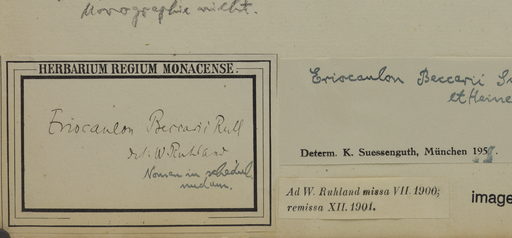 Monographia nicht.
HERBARIUM REGIUM MONACENSE.
Eriocaulon Beccarii Ruhl
det. W. Ruhland
Nomen in schedul.
nudum.
Eriocaulon Beccarii
et Heine
Determ. K. Suessenguth, München 195
Ad W. Ruhland missa VII. 1900;
remissa XII. 1901.
image